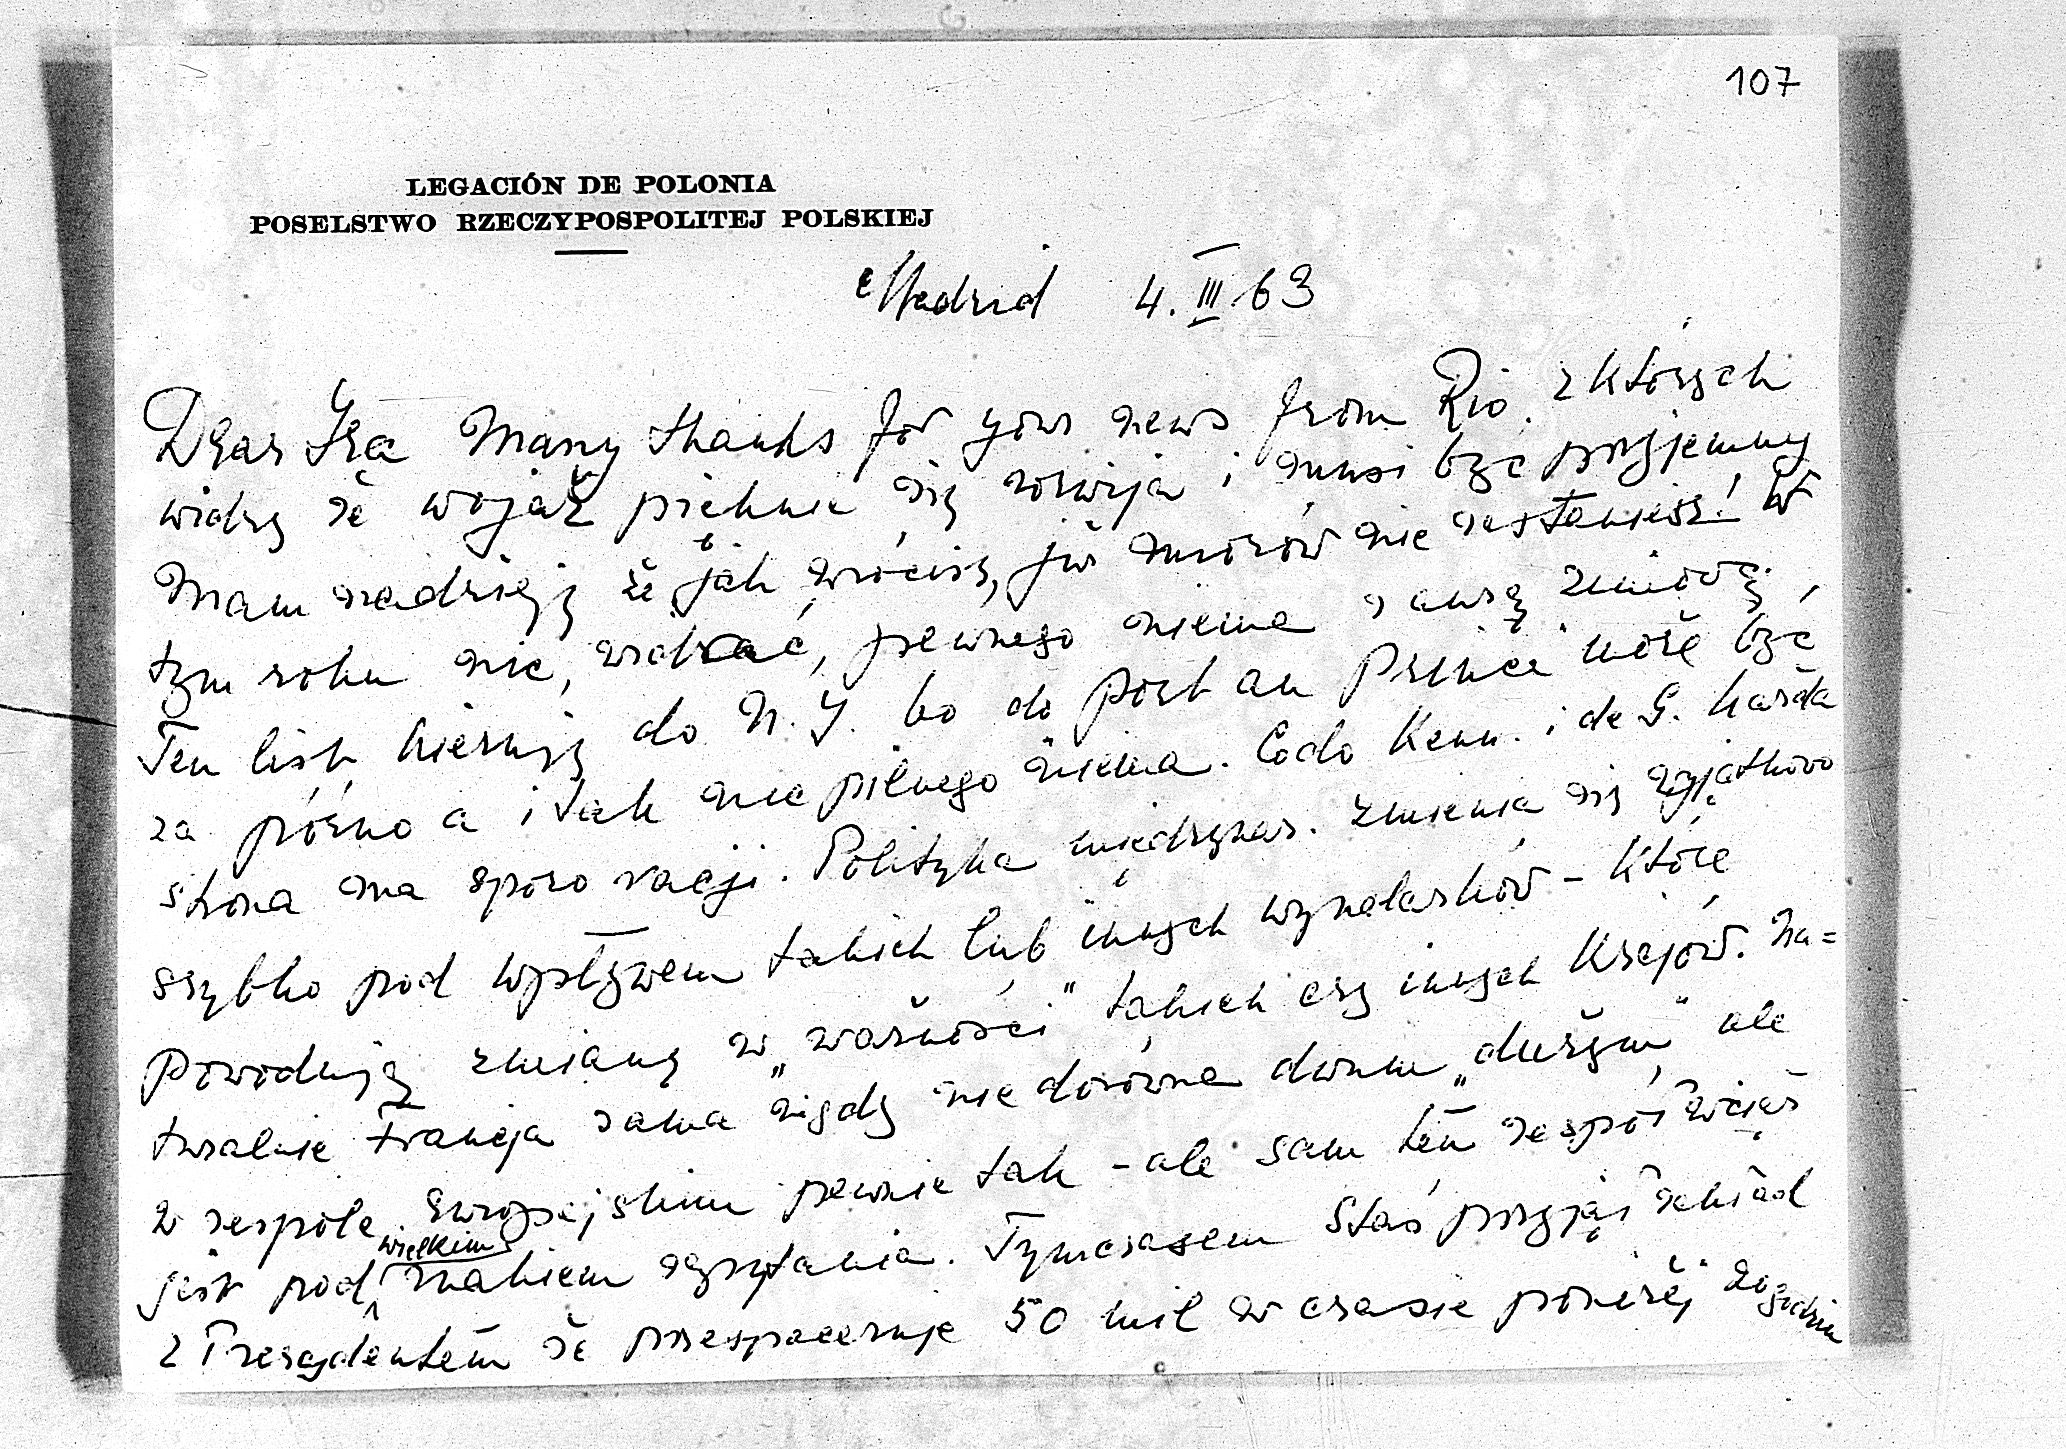 107
LEGACIÓN DE POLONIA
POSELSTWO RZECZYPOSPOLITEJ POLSKIEJ
Madrid 4.III.63
Dear Iza Many thanks for your news from Rio. z których
widzę że wojaż pięknie się rozwija i musi być przyjemny
Mam nadzieję że jak wrócisz, już mrozów nie zastaniesz! W
tym roku nic, widać, pewnego niema z zimową,
Ten list kieruję do N.Y. bo do Port au Prince może być
za późno a i tak nic pilnego niema. Co do Kenn. i de G. każda
strona ma sporo racji. Polityka międzynar. zmienia się wyjątkowo
szybko pod wpływem takich lub innych wynalazków – które
powodują zmianę w „ważności" takich czy innych Krajów. Na=
turalnie Francja sama nigdy nie dorówna dwum „dużym", ale
w zespole Europejskim pewnie tak – ale sam ten zespół wciąż
jest pod wielkim znakiem zapytania. Tymczasem Staś przyjął zakład
z Prezydentem że przespaceruje 50 mil w czasie poniżej 20 godzin